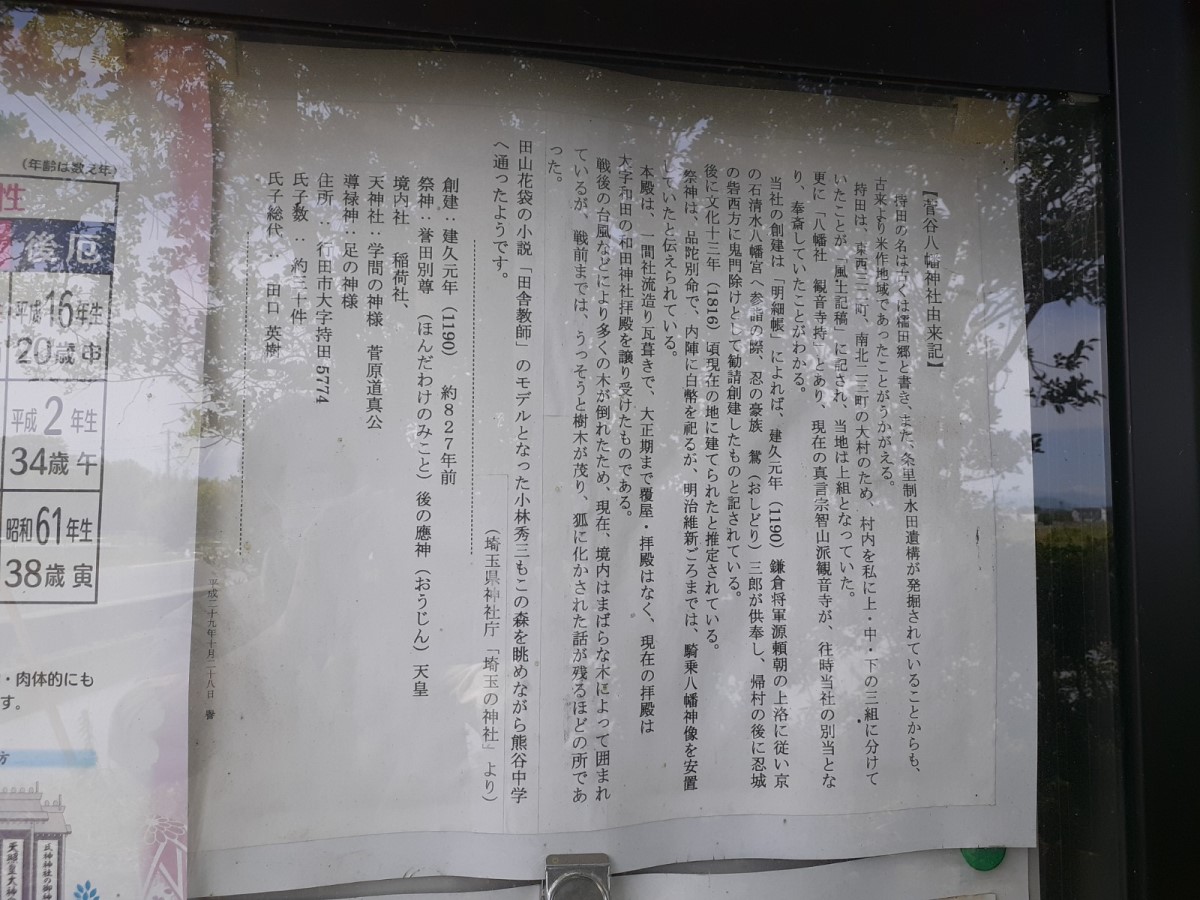 【菅谷八幡神社由来記】
持田の名は古くは糯田郷と書き、また、条里制水田遺構が発掘されていることからも、
古来より米作地域であったことがうかがえる。
持田は、東西三二町、南北二三町の大村のため、村内を私に上・中・下の三組に分けて
いたことが「風土記稿」に記され、当地は上組となっていた。
更に「八幡社　観音寺持」とあり、現在の真言宗智山派観音寺が、往時当社の別当とな
り、奉斎していたことがわかる。
当社の創建は「明細帳」によれば、建久元年（1190）鎌倉将軍源頼朝の上洛に従い京
の石清水八幡宮へ参詣の際、忍の豪族　鴛（おしどり）三郎が供奉し、帰村の後に忍城
の砦西方に鬼門除けとして勧請創建したものと記されている。
後に文化十三年（1816）頃現在の地に建てられたと推定されている。
祭神は、品陀別命で、内陣に白幣を祀るが、明治維新ごろまでは、騎乗八幡神像を安置
していたと伝えられている。
本殿は、一間社流造り瓦葺きで、大正期まで覆屋・拝殿はなく、現在の拝殿は
大字和田の和田神社拝殿を譲り受けたものである。
戦後の台風などにより多くの木が倒れたため、現在、境内はまばらな木によって囲まれ
ているが、戦前までは、うっそうと樹木が茂り、狐に化かされた話が残るほどの所であ
った。
（埼玉県神社庁「埼玉の神社」より）
田山花袋の小説「田舎教師」のモデルとなった小林秀三もこの森を眺めながら熊谷中学
へ通ったようです。
創建：建久元年（1190）　約８２７年前
祭神：誉田別尊（ほんだわけのみこと）後の應神（おうじん）天皇
境内社　稲荷社、
天神社：学問の神様　菅原道真公
導禄神：足の神様
住所：　行田市大字持田5774
氏子数：　約三十件
氏子総代：　田口　英樹
平成二十九年十月二十八日
（年齢は数え年）
性
後厄
平成16年生
20歳申
平成2年生
34歳午
昭和61年生
38歳寅
・肉体的にも
す。
方